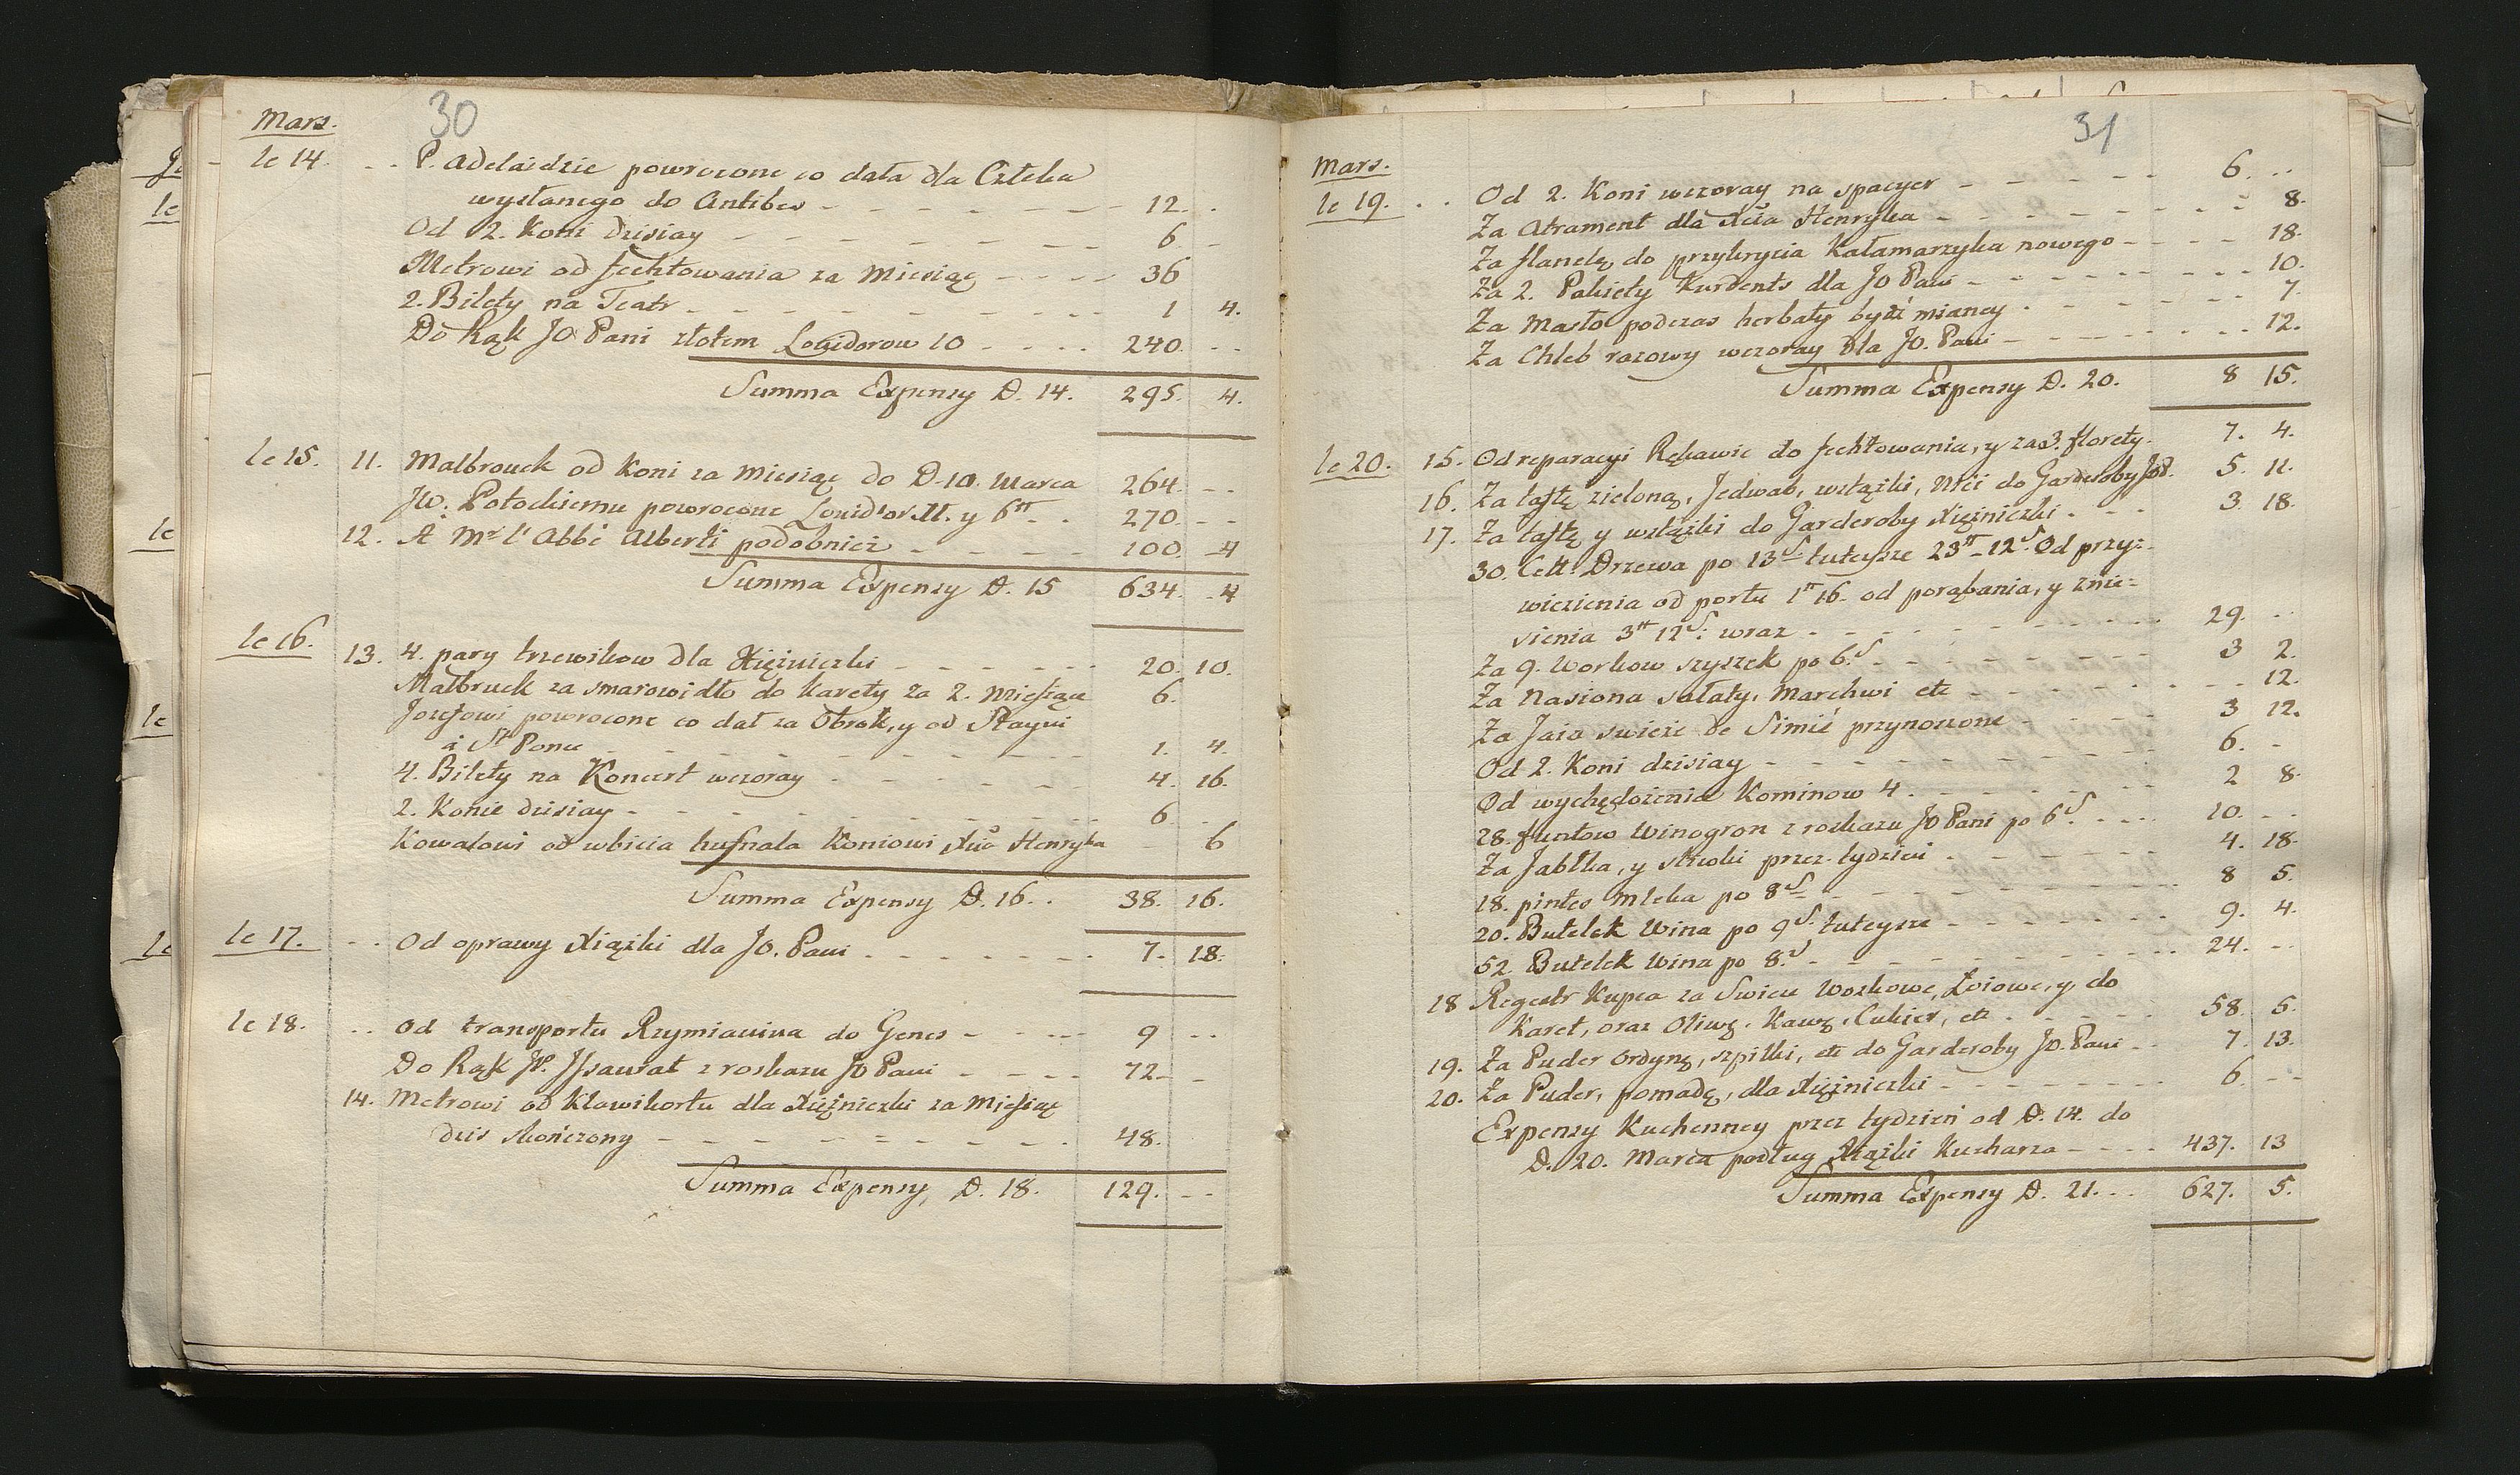 30
Mars.
le 14. . . P. Adelaidzie powrocone co dała dla Człeka
wysłanego do Antibes - - - 12. .
Od 2. Koni dzisiay - - - 6 -
Metrowi od fechtowania za Miesiąc - - - 36
2. Bilety na Teatr - - - 1 4.
Do Rąk JO Pani złotem Louidorow 10 - - - 240. - -
Summa Expensy D. 14. 295. 4.
le 15. 11. Malbrouck od Koni za Miesiąc do D. 10. Marca 264. - -
JW. Potockiemu powrocone Louid'or 11. y 6tt - . 270. - -
12. A Mr l'Abbé Alberti podobnież - - - 100. 4
Summa Expensy D. 15 634. 4
le 16. 13. 4. pary trzewikow dla Xiężniczki - - - 20. 10.
Malbruck za smarowidło do Karety za 2. Miesiące 6.
Jozefowi powrocone co dał za Obrok, y od Stayni
à St Pons - - - 1. 4.
4. Bilety na Koncert wczoray - - - 4. 16.
2. Konie dzisiay - - - 6 .
Kowalowi od wbicia hufnala Koniowi Xcia Henryka 6
Summa Expensy D. 16. . 38. 16.
le 17. . . Od oprawy Xiążki dla JO. Pani - - - 7. 18.
le 18. . . Od transportu Rzymianina do Genes - - - 9 - -
Do Rąk JP. Issaurat z roskazu JO Pani - - - 72 - -
14. Metrowi od Klawikortu dla Xiężniczki za Miesiąc
dziś skończony - - - 48.
Summa Expensy, D. 18. 129. - -
31
Mars.
le 19. . . Od 2. Koni wczoray na spacyer - - - 6. . .
Za Atrament dla Xcia Henryka - - - 8.
Za flanelę do przykrycia Kałamarzyka nowego - - - 18.
Za 2. Pakiety Kurdents dla JO Pani - - - 10.
Za Masło podczas herbaty być mianey - - - 7.
Za Chleb razowy wczoray dla JO. Pani - - - 12.
Summa Expensy D. 20. 8 15.
le 20. 15. Od reparacyi Rękawic do fechtowania, y za 3. florety. 7. 4.
16. Za taftę zieloną, Jedwab, wstążki, Nici do Garderoby JOP. 5. 11.
17. Za taftę y wstążki do Garderoby Xiężniczki . - - 3 18.
30. Cett. Drzewa po 13S. tuteysze 23tt - 12S. Od przy=
wiezienia od portu 1tt 16. od porąbania, y znie=
sienia 3tt 12S: wraz - - - 29. . .
Za 9. Workow szyszek po 6.S - - - 3 2.
Za Nasiona sałaty, Marchwi etc - - - 12.
Za Jaia swieże de Simié przynoszone - - - 3 12.
Od 2. Koni dzisiay - - - 6. -
Od wychędożenia Kominow 4 . - - - 2 8.
28. funtow Winogron z roskazu JO Pani po 6S. - - - 10. - .
Za Jabłka, y sliwki przez tydzień . - - - 4. 18.
18. pintes Mleka po 8S - - - 8 5.
20. Butelek Wina po 9S. tuteysze - - - 9. 4.
52. Butelek Wina po 8.S - - - 24. - -
18 Regestr Kupca za Swiece Woskowe, Łoiowe, y do
Karet, oraz Oliwę, Kawę, Cukier, etc - - - 58. 5.
19. Za Puder ordynę, szpilki, etc do Garderoby JO. Pani - - 7. 13.
20. Za Puder, pomadę, dla Xiężniczki - - - 6. - -
Expensy Kuchenney przez tydzień od D. 14. do
D. 20. Marca podług Xiążki Kucharza - - - 437. 13
Summa Expensy D. 21. . . 627. 5.